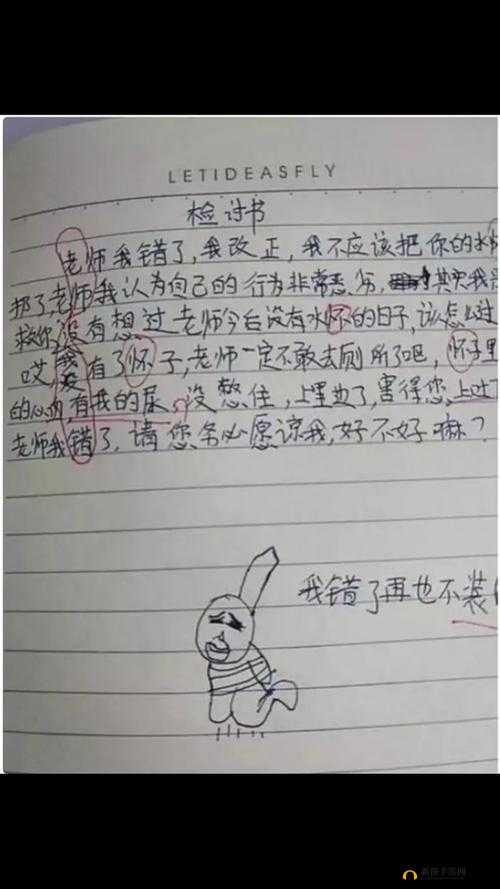 LETIDEASFLY
检讨书
老师我错了,我改正,我不应该把你的水
扔了,老师我认为自己的行为非常恶劣,其实我
救你,没有想过老师今后没有水怀的日子,该怎么过
哎,我有了怀子,老师一定不敢去厕所了吧,怀子里
的心内有我的尿,没憋住,上里边了,害得您上吐
老师我错了,请您务必愿谅我,好不好嘛?
我错了再也不装